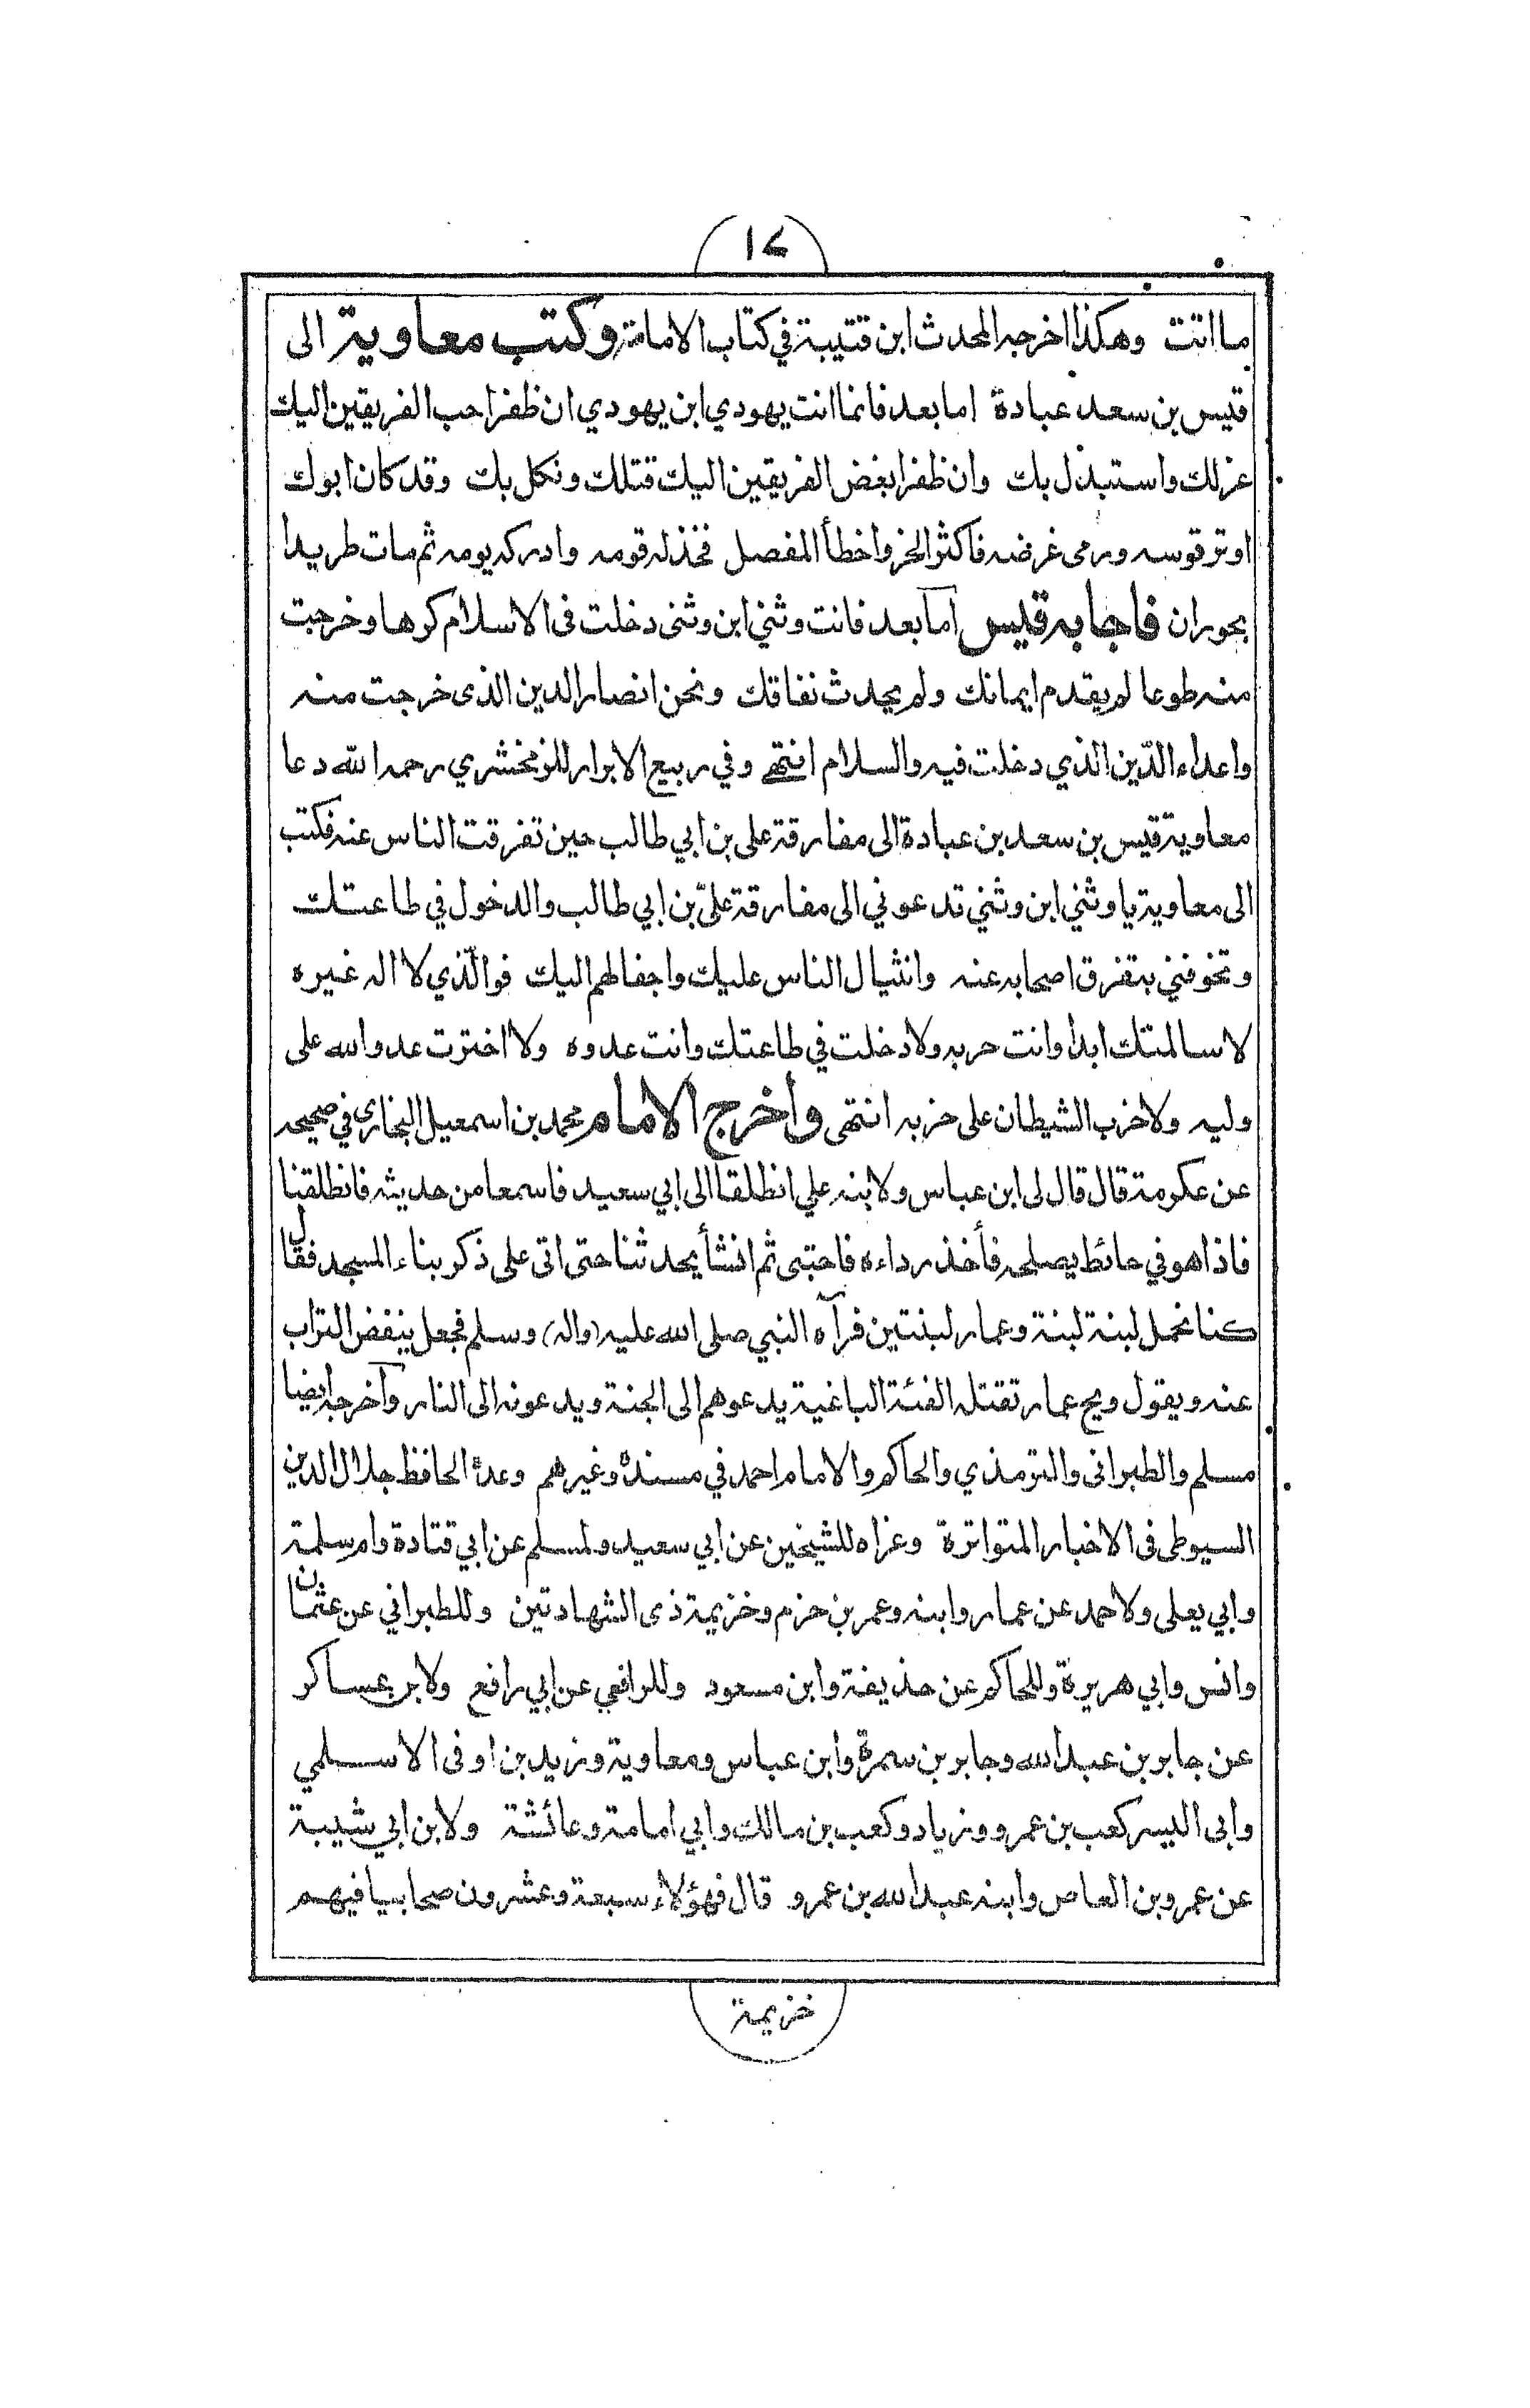 ١٤
ما انت وهكذا اخرجه المحدث ابن قتيبة في كتاب الامامة وكتب معاوية الى
قيس بن سعد عبادة اما بعد فانما انت يهودي ابن يهودي ان ظفر احب الفريقين اليك
عزلك واستبدل بك وان ظفر ابغض الفريقين اليك قتلك ونكل بك وقد كان ابوك
اوتر قوسه ورمى غرضه فاكثر الحز واخطأ المفصل فخذله قومه وادركه يومه ثم مات طريدا
بحوران فاجابه قيس اما بعد فانت وثني ابن وثنى دخلت فى الاسلام كرها وخرجت
منه طوعا لم يقدم ايمانك ولم يحدث نفاقك ونحن انصار الدين الذى خرجت منه
واعداء الدّين الذي دخلت فيه والسلام انتهى وفي ربيع الابرار للزمخشري رحمه الله دعا
معاوية قيس بن سعد بن عبادة الى مفارقة على بن ابي طالب حين تفرقت الناس عنه فكتب
الى معاوية يا وثني ابن وثني تدعوني الى مفارقة علىّ بن ابي طالب والدخول في طاعتك
وتخوفني بتفرق اصحابه عنه وانثيال الناس عليك واجفالهم اليك فوالّذي لا اله غيره
لا سالمتك ابدا وانت حربه ولا دخلت في طاعتك وانت عدوه ولا اخترت عدو الله على
وليه ولا حزب الشيطان على حزبه انتهى وأخرج الامام محمد بن اسمعيل البخارى في صحيحه
عن عكرمة قال قال لى ابن عباس ولابنه علي انطلقا الى ابي سعيد فاسمعا من حديثه فانطلقنا
فاذا هو في حائط يصلحه فأخذ رداءه فاحتبى ثم انشأ يحدثنا حتى اتى على ذكر بناء المسجد فقال
كنا نحمل لبنة لبنة وعمار لبنتين فرآه النبي صلى الله عليه (واله) وسلم فجعل ينفض التراب
عنه ويقول ويح عمار تقتله الفئة الباغية يدعوهم الى الجنة ويدعونه الى النار وآخرجه ايضا
مسلم والطبرانى والترمذي والحاكم والامام احمد في مسنده وغيرهم وعده الحافظ جلال الدين
السيوطى فى الاخبار المتواترة وعزاه للشيخين عن ابي سعيد ولمسلم عن ابي قتادة وام سلمة
وابي يعلى ولاحمد عن عمار وابنه وعمر بن حزم وخزيمة ذى الشهادتين وللطبراني عن عثمان
وانس وابي هريرة وللحاكم عن حذيفة وابن مسعود وللرافعي عن ابي رافع ولابن عساكر
عن جابر بن عبد الله وجابر بن سمرة وابن عباس ومعاوية وزيد بن اوفى الاسلمي
وابى اليسر كعب بن عمرو وزياد وكعب بن مالك وابي امامة وعائشة ولابن ابي شيبة
عن عمرو بن العاص وابنه عبد الله بن عمرو قال فهؤلاء سبعة وعشرون صحابيا فيهم
خزيمة